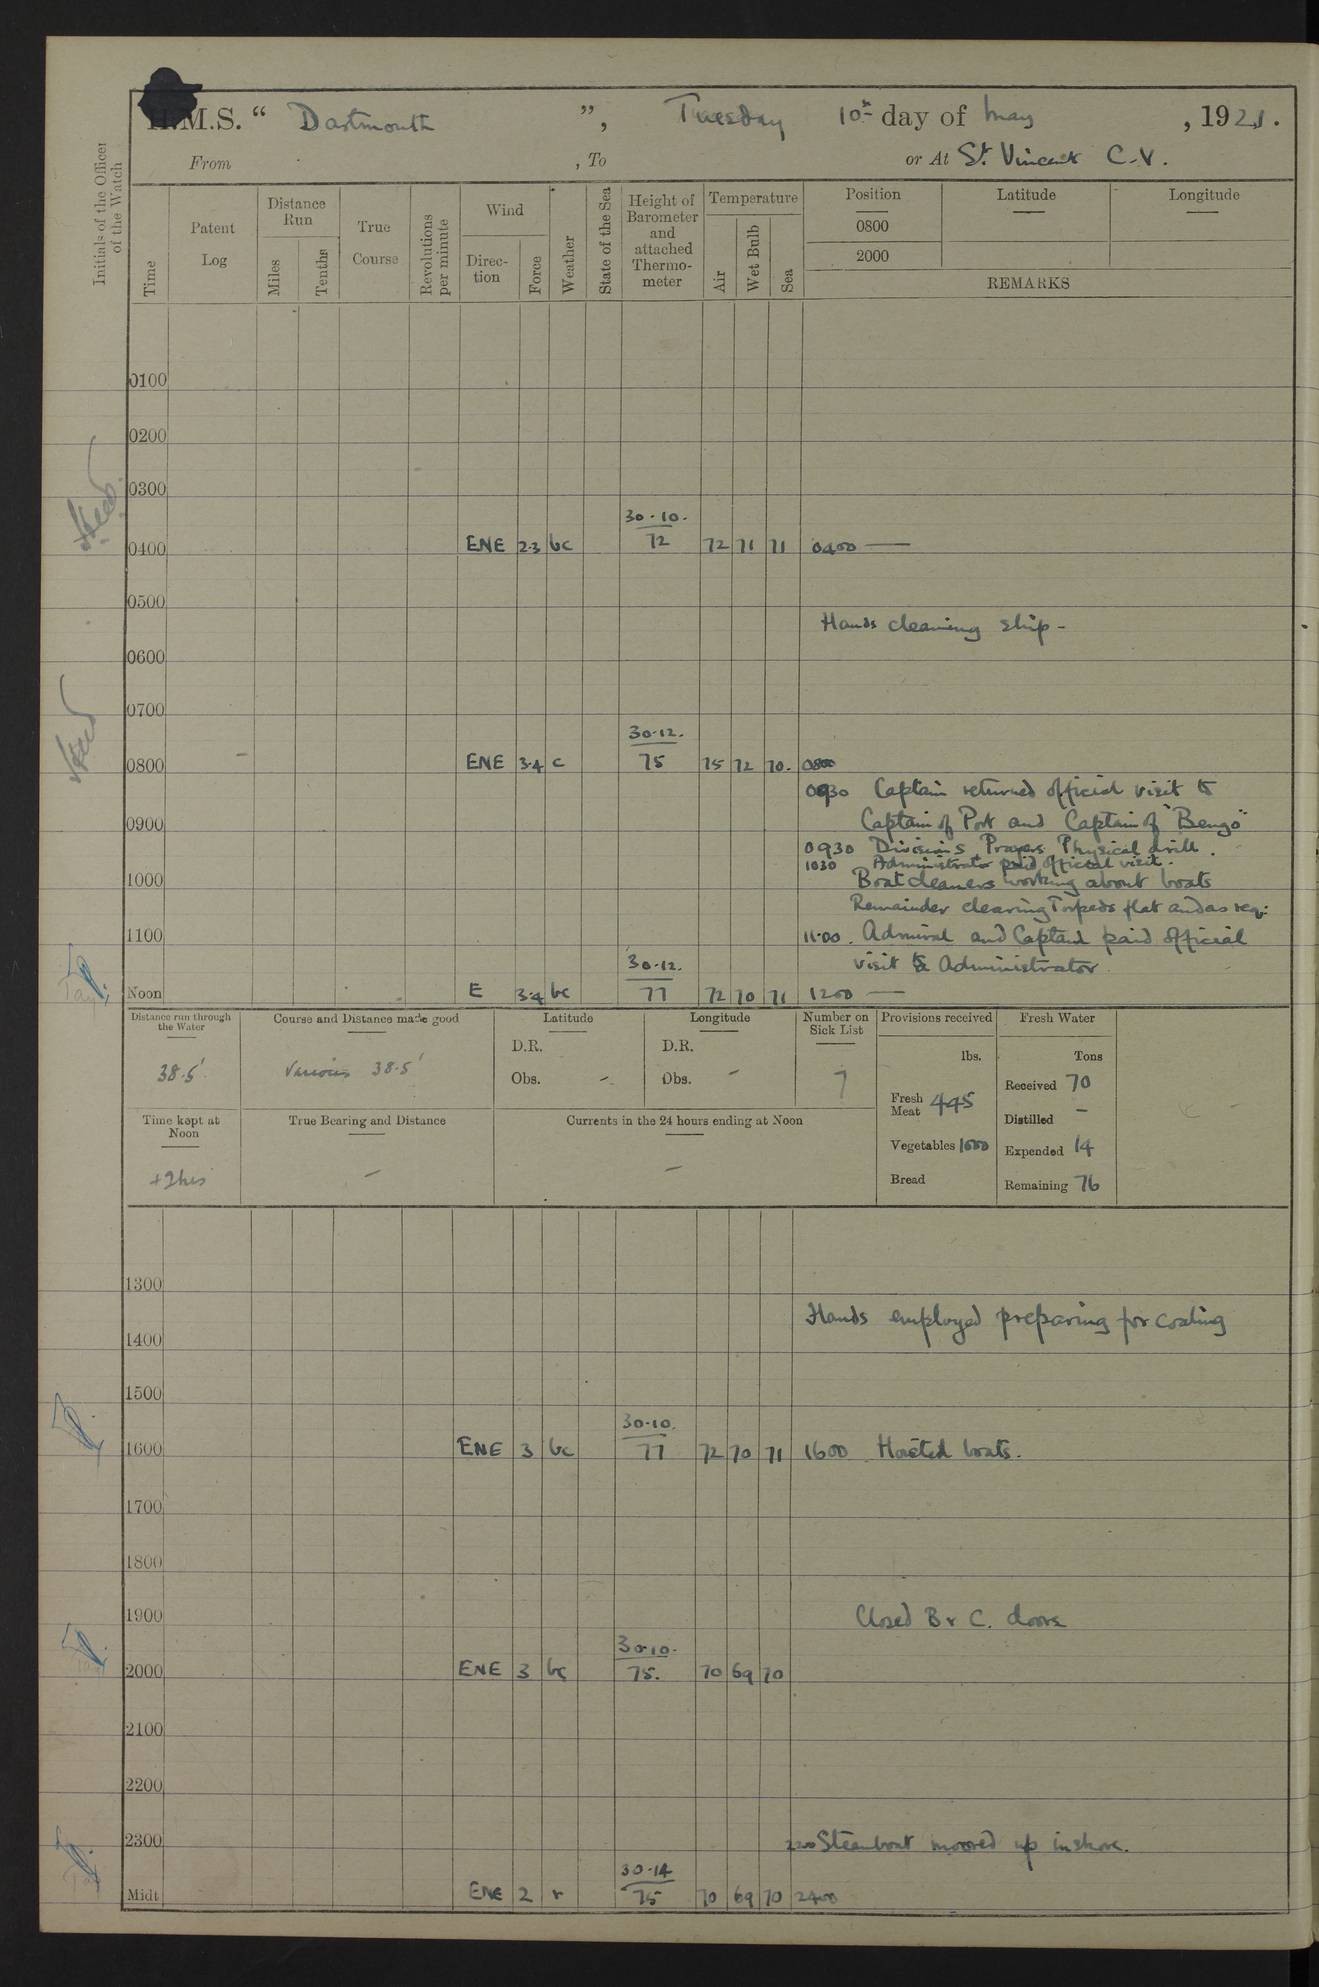 H.M.S. “ Dartmouth ”, Tuesday 10th day of May , 1921.
From , To or At St. Vincent C.V.
Initials of the Officer of the Watch
Time
Patent Log
Distance Run
Miles
Tenths
True Course
Revolutions per minute
Wind
Direc-tion
Force
Weather
State of the Sea
Height of Barometer and attached Thermo-meter
Temperature
Air
Wet Bulb
Sea
Position Latitude Longitude
0800
2000
REMARKS
0100
0200
0300
30.10.
0400 ENE 2.3 bc 72 72 71 71 0400 —
0500
Hands cleaning ship -
0600
0700
30.12.
0800 ENE 3.4 c 75 75 72 70. 0800
0930 Captain returned official visit to
0900 Captain of Port and Captain of "Bengo"
0930 Divisions Prayers Physical drill.
1030 Administrator paid official visit.
1000 Boatcleaners working about boats
Remainder clearing Torpedo flat and as req:
1100 11.00. Admiral and Captain paid official
30.12. visit to Administrator.
Noon E 3.4 bc 77 72 70 71 1200 —
Distance run through the Water
38.5'
Course and Distance made good
Various 38.5'
Latitude
D.R.
Obs. -
Longitude
D.R.
Obs. -
Number on Sick List
7
Provisions received
lbs.
Fresh Meat 445
Vegetables 1000
Bread
Fresh Water
Tons
Received 70
Distilled -
Expended 14
Remaining 76
Time kept at Noon
+2hrs
True Bearing and Distance
-
Currents in the 24 hours ending at Noon
-
1300
Hands employed preparing for coaling
1400
1500
30.10.
1600 ENE 3 bc 77 72 70 71 1600 Hoisted boats.
1700
1800
1900 Closed B & C. doors
30.10.
2000 ENE 3 bc 75. 70 69 70
2100
2200
2300 2200 Steamboat moored up inshore.
30.14
Midt ENE 2 r 75 70 69 70 2400